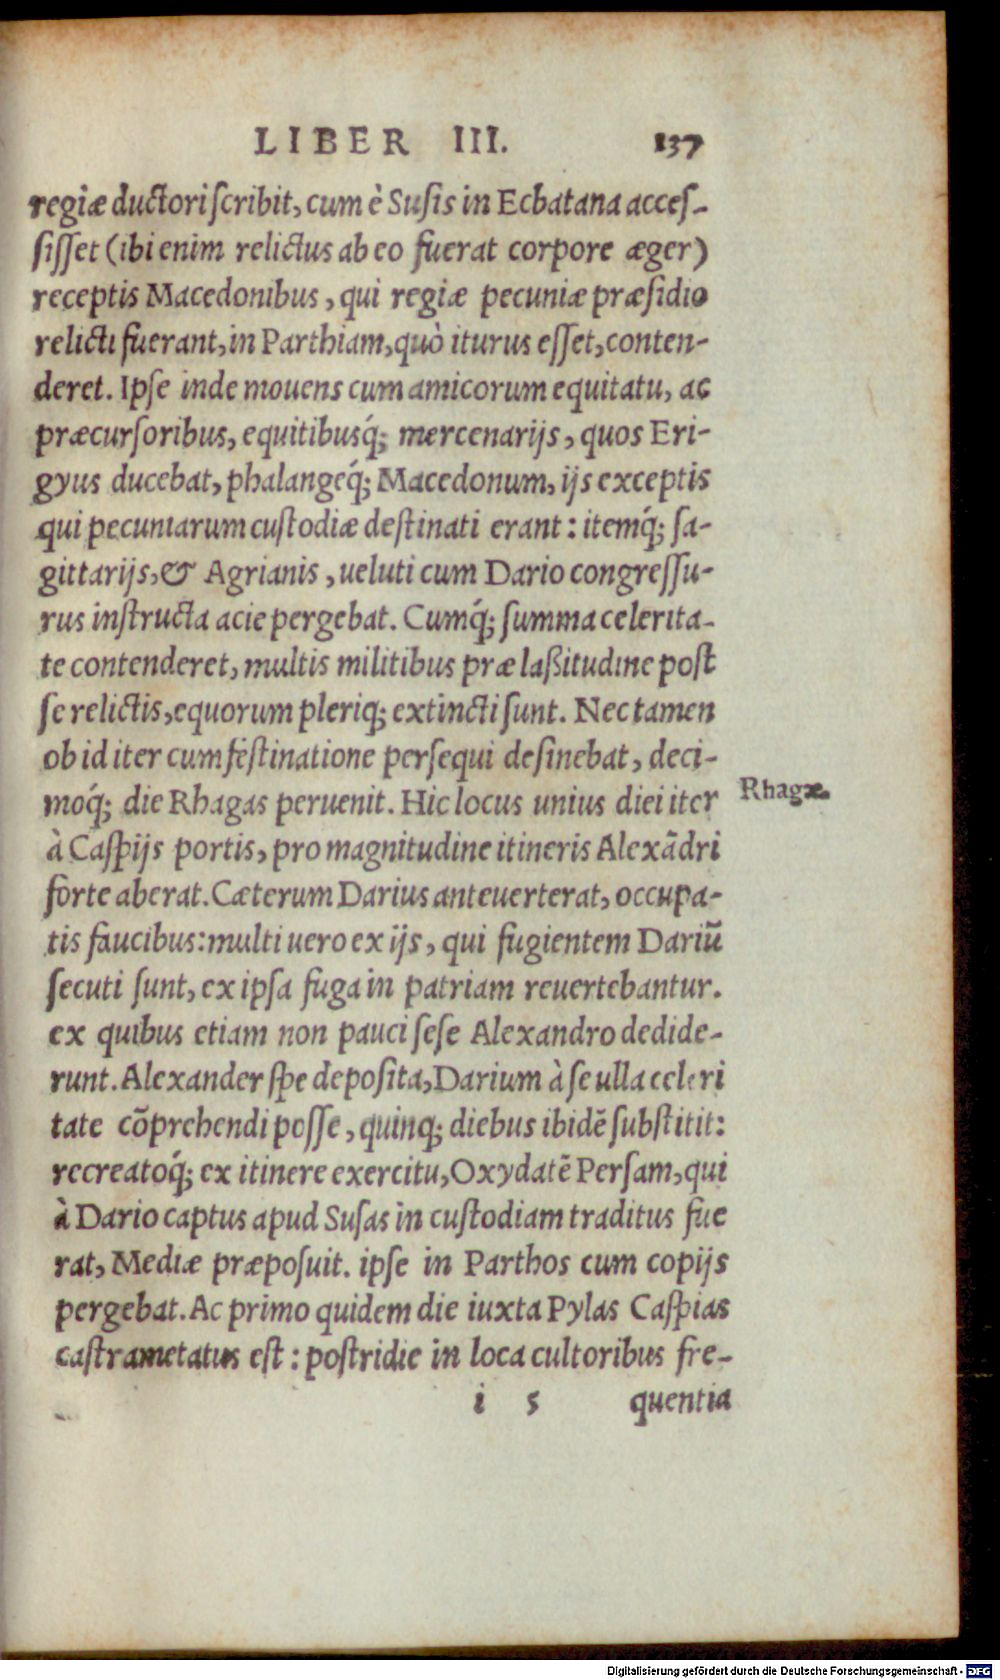 LIBER III. 137
regiæ ductori scribit, cum è Susis in Ecbatana acces-
sisset (ibi enim relictus ab eo fuerat corpore æger)
receptis Macedonibus, qui regiæ pecuniæ præsidio
relicti fuerant, in Parthiam, quò iturus esset, conten-
deret. Ipse inde mouens cum amicorum equitatu, ac
præcursoribus, equitibusq́; mercenarijs, quos Eri-
gyus ducebat, phalangeq́; Macedonum, ijs exceptis
qui pecuniarum custodiæ destinati erant: itemq́; sa-
gittarijs, & Agrianis, ueluti cum Dario congressu-
rus instructa acie pergebat. Cumq́; summa celerita-
te contenderet, multis militibus præ laßitudine post
se relictis, equorum pleriq; extincti sunt. Nec tamen
ob id iter cum festinatione persequi desinebat, deci-
moq́; die Rhagas peruenit. Hic locus unius diei iter
Rhagæ.
à Caspijs portis, pro magnitudine itineris Alexãdri
forte aberat. Cæterum Darius anteuerterat, occupa-
tis faucibus: multi uero ex ijs, qui fugientem Dariũ
secuti sunt, ex ipsa fuga in patriam reuertebantur.
ex quibus etiam non pauci sese Alexandro dedide-
runt. Alexander spe deposita, Darium à se ulla celeri
tate cõprehendi posse, quinq; diebus ibidẽ substitit:
recreatoq́; ex itinere exercitu, Oxydatẽ Persam, qui
à Dario captus apud Susas in custodiam traditus fue
rat, Mediæ præposuit. ipse in Parthos cum copijs
pergebat. Ac primo quidem die iuxta Pylas Caspias
castrametatus est: postridie in loca cultoribus fre-
i 5 quentia
Digitalisierung gefördert durch die Deutsche Forschungsgemeinschaft - DFG